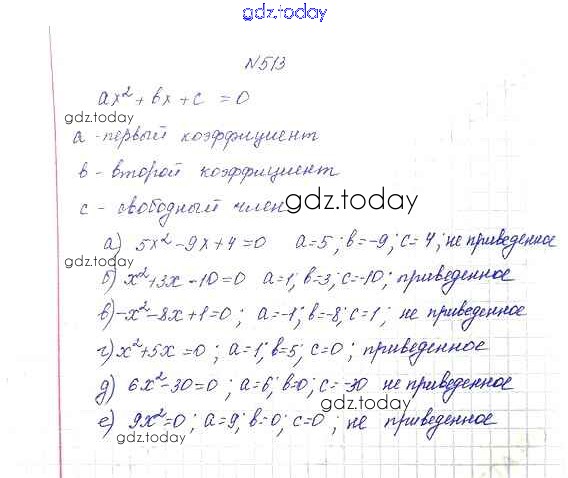 gdz.today
№513
ax² + bx + c = 0
gdz.today
a - первый коэффициент
b - второй коэффициент
gdz.today
c - свободный член
а) 5x² - 9x + 4 = 0 a = 5; b = -9; c = 4; не приведенное
gdz.today
б) x² + 3x - 10 = 0 a = 1; b = 3; c = -10; приведенное
в) -x² - 8x + 1 = 0; a = -1; b = -8; c = 1; не приведенное
г) x² + 5x = 0; a = 1; b = 5; c = 0; приведенное
д) 6x² - 30 = 0; a = 6; b = 0; c = -30 не приведенное
gdz.today
е) 9x² = 0; a = 9; b = 0; c = 0; не приведенное
gdz.today